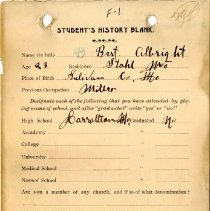 F-1
STUDENT'S HISTORY BLANK.
Name (in full) Bert Albright
Age 23 Residence Stahl Mo
Place of Birth Sullivan Co, Mo
Previous Occupation Miller
Designate each of the following that you have attended by giving name of school, and after "graduated" write "yes" or "no."
High School Carrollton Mo Graduated No
Academy
College
University
Medical School
Nurses' School
Are you a member of any church, and if so of what denomination?